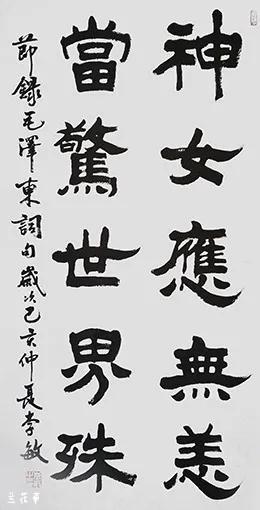 神女應無恙
當驚世界殊
節錄毛澤東詞句歲次己亥仲夏李敏
兰花草